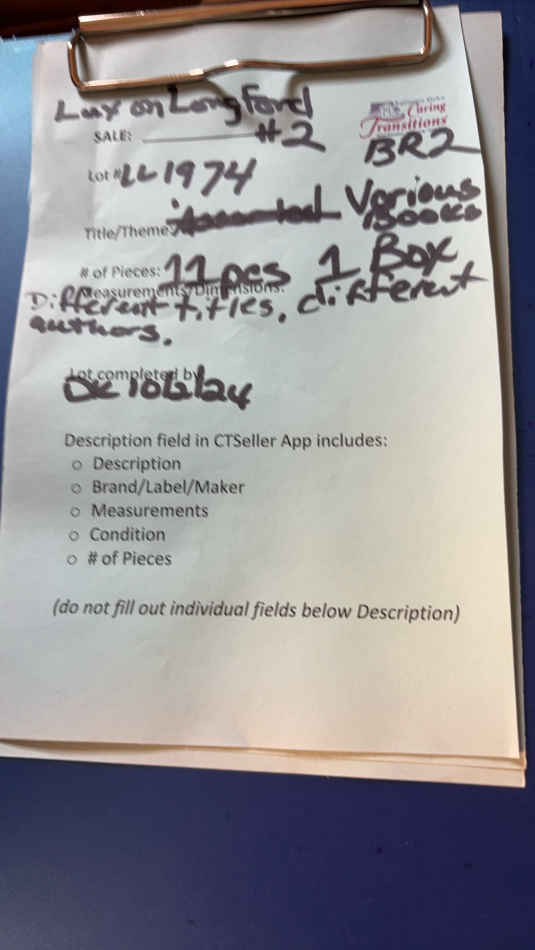 Lux on Longford
Caring
Transitions
SALE: #2
BR2
Lot # LL 1974
Title/Theme: Various
Books
# of Pieces: 11 pcs 1 Box
Measurements/Dimensions:
Different titles, different
authors.
Lot completed by
Description field in CTSeller App includes:
○ Description
○ Brand/Label/Maker
○ Measurements
○ Condition
○ # of Pieces
(do not fill out individual fields below Description)